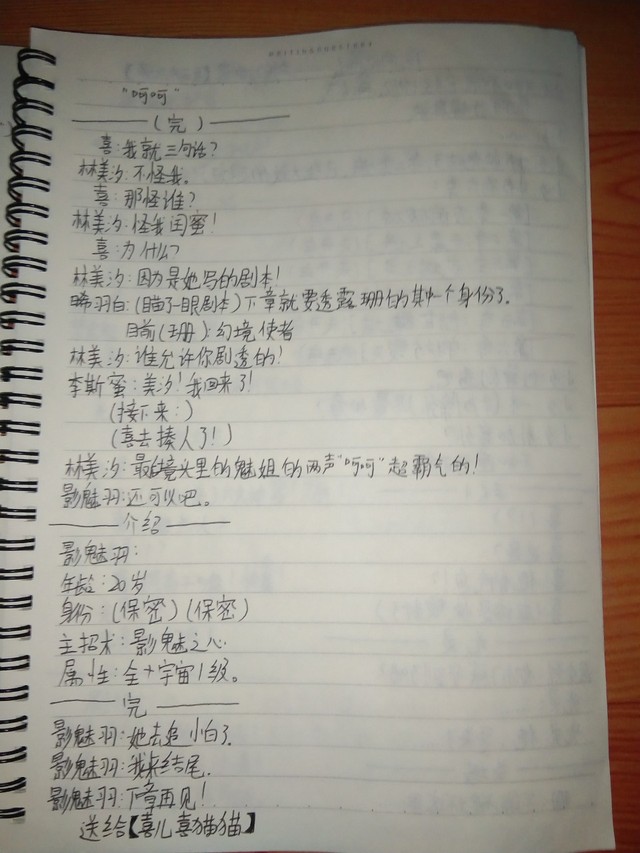 "呵呵"
———(完)———
喜:我就三句话?
林美汐:不怪我。
喜:那怪谁?
林美汐:怪我闺蜜!
喜:为什么?
林美汐:因为是她写的剧本!
羽白:(瞄了一眼剧本)下章就要透露珊的其中一个身份了。
目前(珊):幻境使者
林美汐:谁允许你剧透的!
李斯蜜:美汐!我回来了!
(接下来:)
(喜去揍人了!)
林美汐:最后镜头里的魅姐的两声"呵呵"超霸气的!
影魅羽:还可以吧。
———介绍———
影魅羽:
年龄:20岁
身份:(保密)(保密)
主招术:影魅之心
属性:全+宇宙1级。
———完———
影魅羽:她去追小白了.
影魅羽:我来结尾.
影魅羽:下章再见!
送给【喜儿喜猫猫】